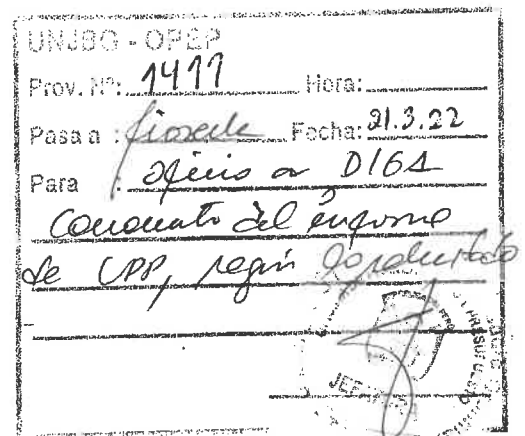 UNJBG - OPEP
Prov. Nº: 1411 Hora:
Pasa a : Fecha: 21.3.22
Para : Oficio a DIGA
del informe
de UPP, según